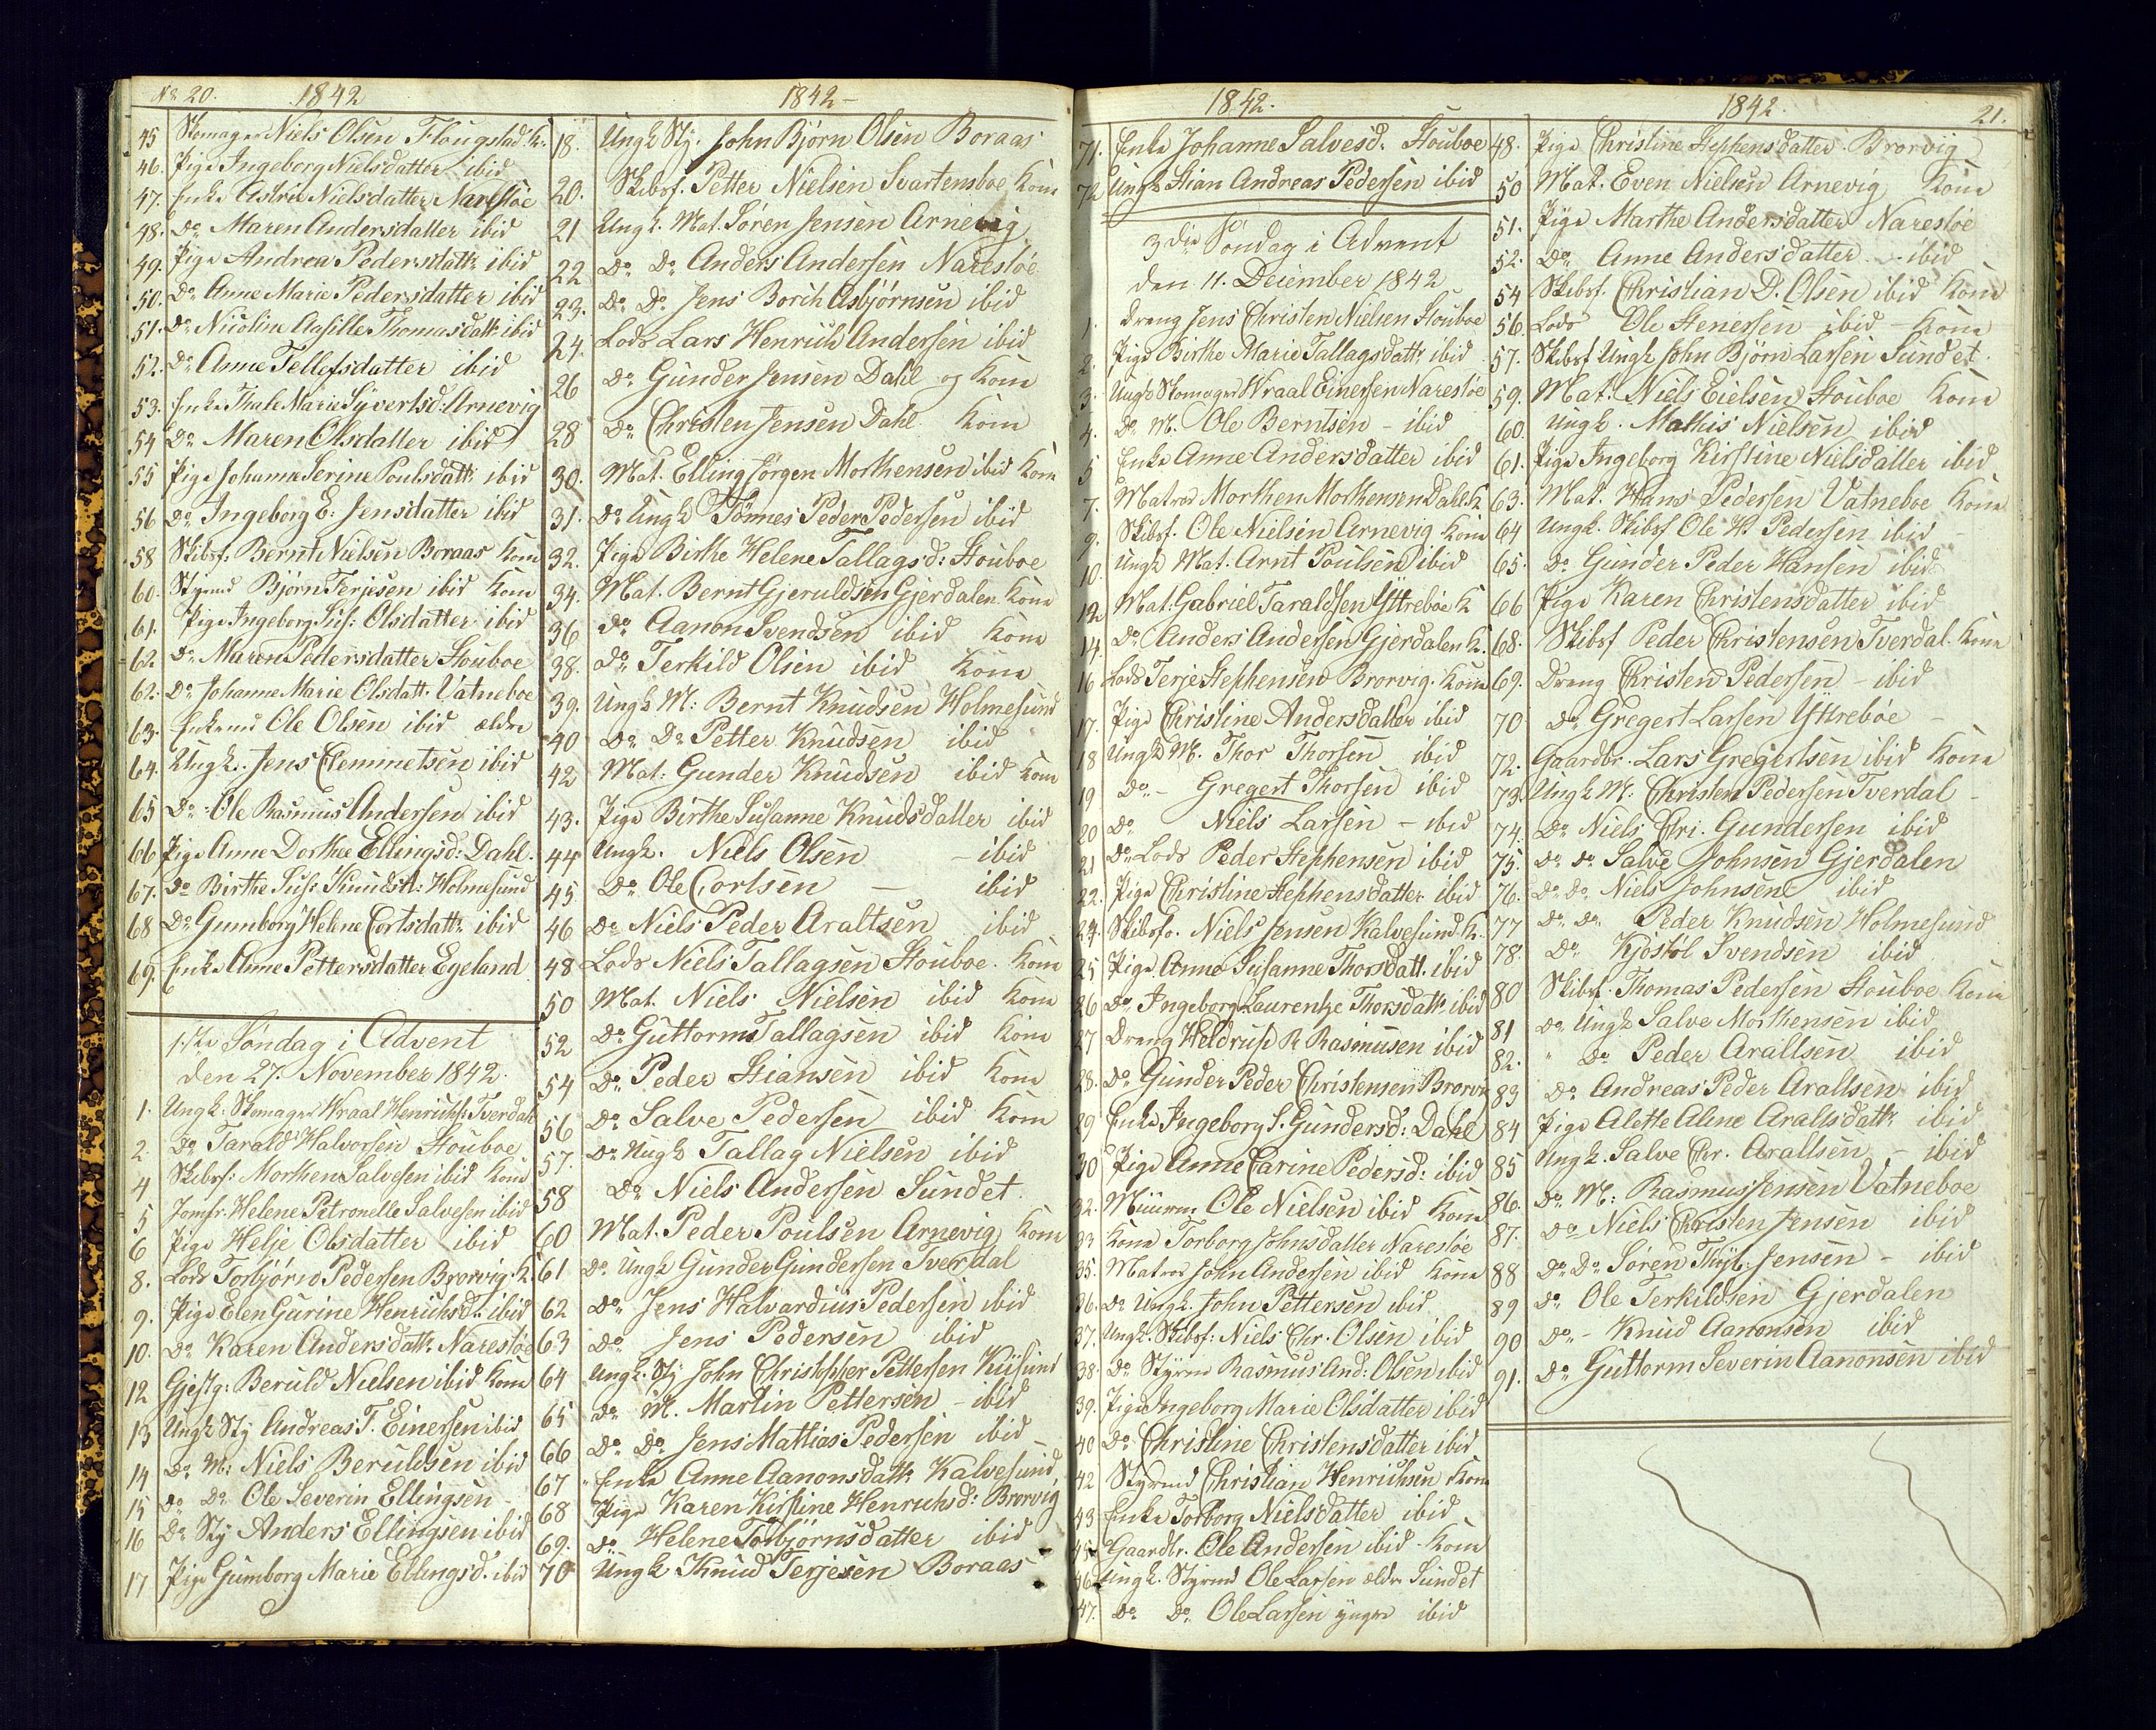 No 20. 1842
45 Skomager Niels Olsen Flougstad K:
46. Pige Ingeborg Nielsdatter ibid
47. Enke Astrie Nielsdatter Narestøe
48. Do Maren Andersdatter ibid
49. Pige Andrea Pedersdattr ibid
50. Do Anne Marie Pedersdatter ibid
51. Do Nicoline Aasille Thomasdattr ibid
52. Do Anne Tellefsdatter ibid
53. Enke Thale Marie Syvertsd: Arnevig
54 Do Maren Olsdatter ibid
55 Pige Johanne Serine Poulsdattr ibid
56 Do Ingeborg E: Jensdatter ibid
58 Skibsf: Bernt Nielsen Boraas Kone
60. Styrmd Bjørn Terjesen ibid Kone
61. Pige Ingeborg Sus: Olsdatter ibid
62 Do Maren Pettersdatter Stouboe
62. Do Johanne Marie Olsdatt. Vatneboe
63. Enkemd Ole Olsen ibid ældre
64. Ungk. Jens Clemmetsen ibid
65 Do Ole Rasmus Andersen ibid
66 Pige Anne Dorthee Ellingsd: Dahl.
67. Do Birthe Sus: Knudsd: Holmesund
68 Do Gumborg Helene Cortsdattr ibid
69. Enke Anne Pettersdatter Egeland
1ste Søndag i Advent
den 27. November 1842.
1. Ungk. Skomager Wraal Henrichs: Tverdal
2. Do Tarald Halvorsen Stouboe
4 Skibsf: Morthen Salvesen ibid Kone
5 Jomfr. Helene Petronelle Salvesen ibid
6 Pige Helje Olsdatter ibid
8. Lods Torbjørn Pedersen Brorvig. K
9. Pige Elen Gurine Henrichsd: ibid
10. Do Karen Andersdattr Narestøe
12 Gjestg: Beruld Nielsen ibid Kone
13 Ungk Sty Andreas T. Einersen ibid
14 Do M: Niels Beruldsen ibid
15 Do Do Ole Severin Ellingsen -
16 Do Sty Anders Ellingsen ibid
17 Pige Gumborg Marie Ellingsd. ibid
1842 -
18. Ungk Sty. John Bjørn Olsen Boraas
20. Skibsf. Petter Nielsen Svartensboe Kone
21 Ungk. Mat. Søren Jensen Arnevig
22 Do Do Anders Andersen Narestøe
23. Do Do Jens Borch Asbjørnsen ibid
24. Lods Lars Henrich Andersen ibid
26 Do Gunder Jensen Dahl og Kone
28 Do Christen Jensen Dahl Kone
30. Mat. Elling Jørgen Morthensen ibid Kone
31. Do Ungk Tønnes Peder Pedersen ibid
32. Pige Birthe Helene Tallagsd: Stouboe
34. Mat. Bernt Gjeruldsen Gjerdalen Kone
36 Do Aanon Svendsen ibid Kone
38. Do Terkild Olsen ibid Kone
39. Ungk M: Bernt Knudsen Holmesund
40 Do Do Petter Knudsen ibid
42 Mat: Gunder Knudsen ibid Kone
43. Pige Birthe Susanne Knudsdatter ibid
44 Ungk. Niels Olsen - ibid
45. Do Ole Cortsen - ibid
46 Do Niels Peder Araltsen ibid
48 Lods Niels Tallagsen Stouboe. Kone
50 Mat. Niels Nielsen ibid Kone
52 Do Guttorm Tallagsen ibid Kone
54 Do Peder Stiansen ibid Kone
56 Do Salve Pedersen ibid Kone
57. Do Ungk Tallag Nielsen ibid
58 Do Niels Andersen Sundet.
60 Mat. Peder Poulsen Arnevig Kone
61 Do Ungk Gunder Gundersen Tverdal
62 Do Jens Halvardius Pedersen ibid
63 Do Jens Pedersen ibid
64 Ungk. Sty John Christopher Pettersen Kiisund
65 Do M. Martin Pettersen - ibid
66 Do Do Jens Mathias Pedersen ibid
67 Enke Anne Aanonsdattr Kalvesund
68 Pige Karen Kirstine Henrichsd: Brorvig
69. Do Helene Torbjørnsdatter ibid
70 Ungk Knud Terjesen Boraas
1842.
71. Enke Johanne Salvesd: Stouboe
72 Ungk Stian Andreas Pedersen ibid
3die Søndag i Advent
den 11. December 1842
1. Dreng Jens Christen Nielsen Stouboe
2. Pige Birthe Marie Tallagsdattr ibid
3. Ungk Skomager Wraal Einersen Narestøe
4. Do M. Ole Berntsen - ibid
5 Enke Anne Andersdatter ibid
7. Matros Morthen Morthensen Dahl. K
9. Skibsf. Ole Nielsen Arnevig Kone
10. Ungk Mat. Arnt Poulsen ibid
12 Mat: Gabriel Taraldsen Yttrebøe K
14. Do Anders Andersen Gjerdalen K.
16 Lods Terje Stephensen Brorvig. Kone
17. Pige Christine Andersdatter ibid
18 Ungk M. Thor Thorsen ibid
19 Do - Gregert Thorsen ibid
20 Do Niels Larsen - ibid
21 Do Lods Peder Stephensen ibid
22. Pige Christine Stephensdatter ibid
24. Skibsfo. Niels Jensen Kalvesund. K.
25 Pige Anne Susanne Thorsdatt. ibid
26 Do Ingeborg Laurentze Thorsdattr ibid
27 Dreng Heldrup R Rasmusen ibid
28. Do Gunder Peder Christensen Brorvig
29 Enke Ingeborg S. Gundersd: Dahl
30 Pige Anne Carine Pedersd: ibid
32. Muurm. Ole Nielsen ibid Kone
33 Kone Torborg Johnsdatter Narestøe
35. Matros John Andersen ibid Kone
36. Do Ungk. John Pettersen ibid
37. Ungk. Skibsf: Niels Chr. Olsen ibid
38. Do Styrm Rasmus And: Olsen ibid
39. Pige Ingeborg Marie Olsdatter ibid
40 Do Christine Christensdatter ibid
42 Styrmd Christian Henrichsen Kone
43 Enke Torborg Nielsdatter ibid
45. Gaardbr. Ole Andersen ibid. Kone
46. Ungk. Styrmd Ole Larsen ældre Sundet
47. Do Do Ole Larsen yngre ibid
1842. 21.
48. Pige Christine Stephensdatter Brorvig
50 Mat. Even Nielsen Arnevig Kone
51. Pige Marthe Andersdatter Narestøe
52. Do Anne Andersdatter . . ibid
54 Skibsf. Christian D. Olsen ibid Kone
56. Lods Ole Stenersen ibid - Kone
57. Skibsf Ungk John Bjørn Larsen Sundet.
59. Mat. Niels Eielsen Stouboe Kone
60. Ungk. Mathis Nielsen ibid
61. Pige Ingeborg Kirstine Nielsdatter ibid
63. Mat. Hans Pedersen Vatneboe Kone
64 Ungk. Skibsf Ole H. Pedersen ibid -
65. Do Gunder Peder Hansen ibid
66 Pige Karen Christensdatter ibid
68. Skibsf Peder Christensen Tverdal. Kone
69. Dreng Christen Pedersen - ibid
70 Do Gregert Larsen Yttrebøe -
72. Gaardbr. Lars Gregertsen ibid Kone
73. Ungk M: Christen Pedersen Tverdal -
74. Do Niels Chri. Gundersen ibid
75. Do Do Salve Johnsen Gjerdalen
76. Do Do Niels Johnsen ibid
77 Do Do Peder Knudsen Holmesund
78. Do Kjøstøl Svendsen ibid
80 Skibsf. Thomas Pedersen Stouboe Kone
81 Do Ungk Salve Morthensen ibid
82. " Do Peder Araltsen ibid
83 Do Andreas Peder Araltsen ibid
84 Pige Alette Aline Araltsdattr ibid
85 Ungk. Salve Chr. Araltsen - ibid
86. Do M: Rasmus Jensen Vatneboe
87. Do Niels Christen Jensen ibid
88 Do Do Søren Jensen - ibid
89 Do Ole Terkildsen Gjerdalen
90 Do - Knud Aanonsen ibid
91. Do Guttorm Severin Aanonsen ibid